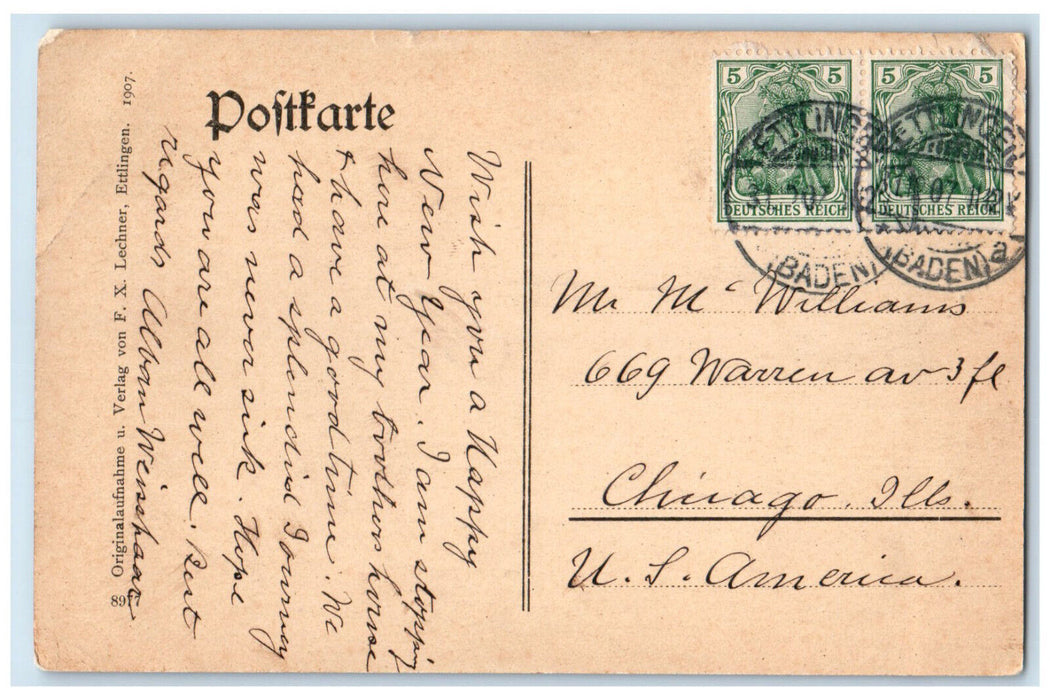 Postkarte
Wish you a Happy
New Year. I am stoppig
here at my brothers house
& have a good time. We
had a splendid Journey
was never sick. Hope
you are all well. Best
regards Alban Weisshaar
Originalaufnahme u. Verlag von F. X. Lechner, Ettlingen. 1907.
8977
5 5
DEUTSCHES REICH
5 5
DEUTSCHES REICH
ETTLINGEN
(BADEN)
ETTLINGEN
(BADEN) a
Mr Mc Williams
669 Warren av 3 fl
Chicago. Ills.
U. S. America.